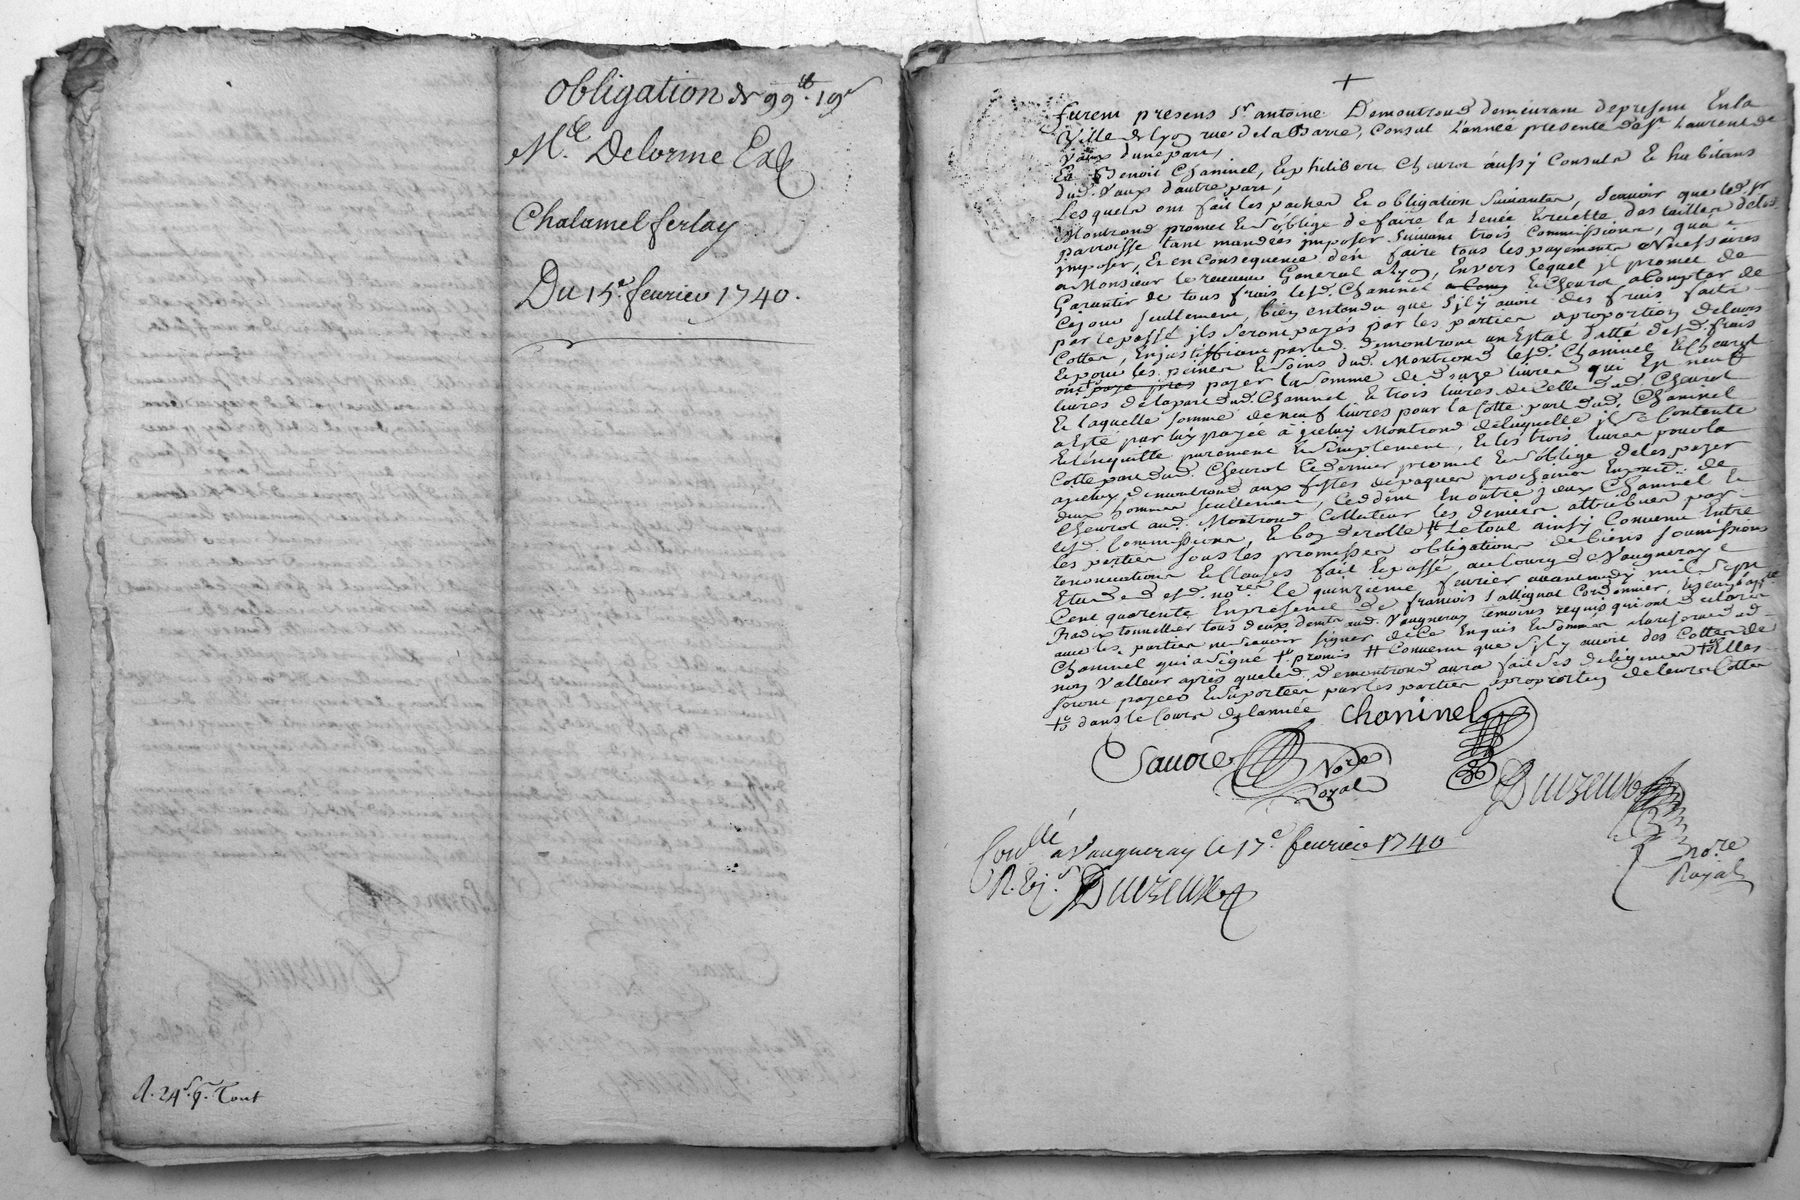 obligation de 99tt. 19s
Me. Delorme Et
Chalamel ferlay
Du 15e. feurier 1740.
R. 24s. 9. Tout
+
furent presens sr. antoine Demontrond demeurant depresent En la
Ville de Lyon rue de la Barre, Consul L'année presente de st. Laurent de
Vaux d'une part,
Et Benoit Chaninel, Et philibert Cheurot aussy Consuls Et habitans
dud. Vaux d'autre part,
Lesquels ont fait les pactes Et obligations Suivantes, Scauoir que led. sr
Montrond promet Et s'oblige de faire la Leuée Et recette des tailles de lad.
parroisse tant mandées imposer Suivant trois Commissions, qu'a
imposer, Et en Consequence d'en faire tous les payements Necessaires
a Monsieur le receueur General a Lyon, Enuers lequel il promet de
Garantir de tous frais lesd. Chaninel Et Cheurot a Compter de
Cejour seullement, bien entendu que s'il y auoit des frais faits
par le passé ils seront payés par les parties a proportion de leurs
Cottes, En justiffiant par led. Demontrond un Estat datté desd. frais
Et pour les peines Et soins dud. Montrond lesd. Chaninel Et Cheurot
ont payer la somme de douze liures qui Est neuf
liures de la part dud. Chaninel Et trois liures de Celle dud. Cheurot
Et laquelle somme de neuf liures pour la Cotte part dud. Chaninel
a Esté par luy payée à jceluy Montrond de laquelle il se Contente
Et l'en quitte purement Et simplement, Et les trois liures pour la
Cotte part dud. Cheurot Ce dernier promet Et s'oblige de les payer
a jceluy Demontrond aux festes de paques prochaines
deux sommes seullement, Ceddent En outre jceux Chaninel Et
Cheurot aud. Montrond Collecteur les deniers attribués par
lesd. Commissions, Et le tout ainsy Conuenu Entre
les parties sous les promesses obligations de biens soumissions
renonciations Et Clauses fait Et passé au bourg de Vaugneray
Etude desd. nores. le quinzieme feurier auant midy mil sept
Cent quarente En presence de francois sallignat Cordonnier, Et jean bapte.
Radix tonnellier tous deux demts. aud. Vaugneray temoins requis qui ont declaré
auec les parties ne scauoir signer de Ce Enquis Et sommés a la reserue dud
Chaninel qui a signé + promis # Conuenu que s'il y auoit des Cottes de
non Valleur après que led. Demontrond aura fait ses diligences Elles
seront payées Et suportées par les parties a proportion de leurs Cottes
dans le Cours de l'année Chaninel
Sauoré Nore Royal
Duizeux nore Royal
Conllé a Vaugneray le 17e feurier 1740
Duizeux